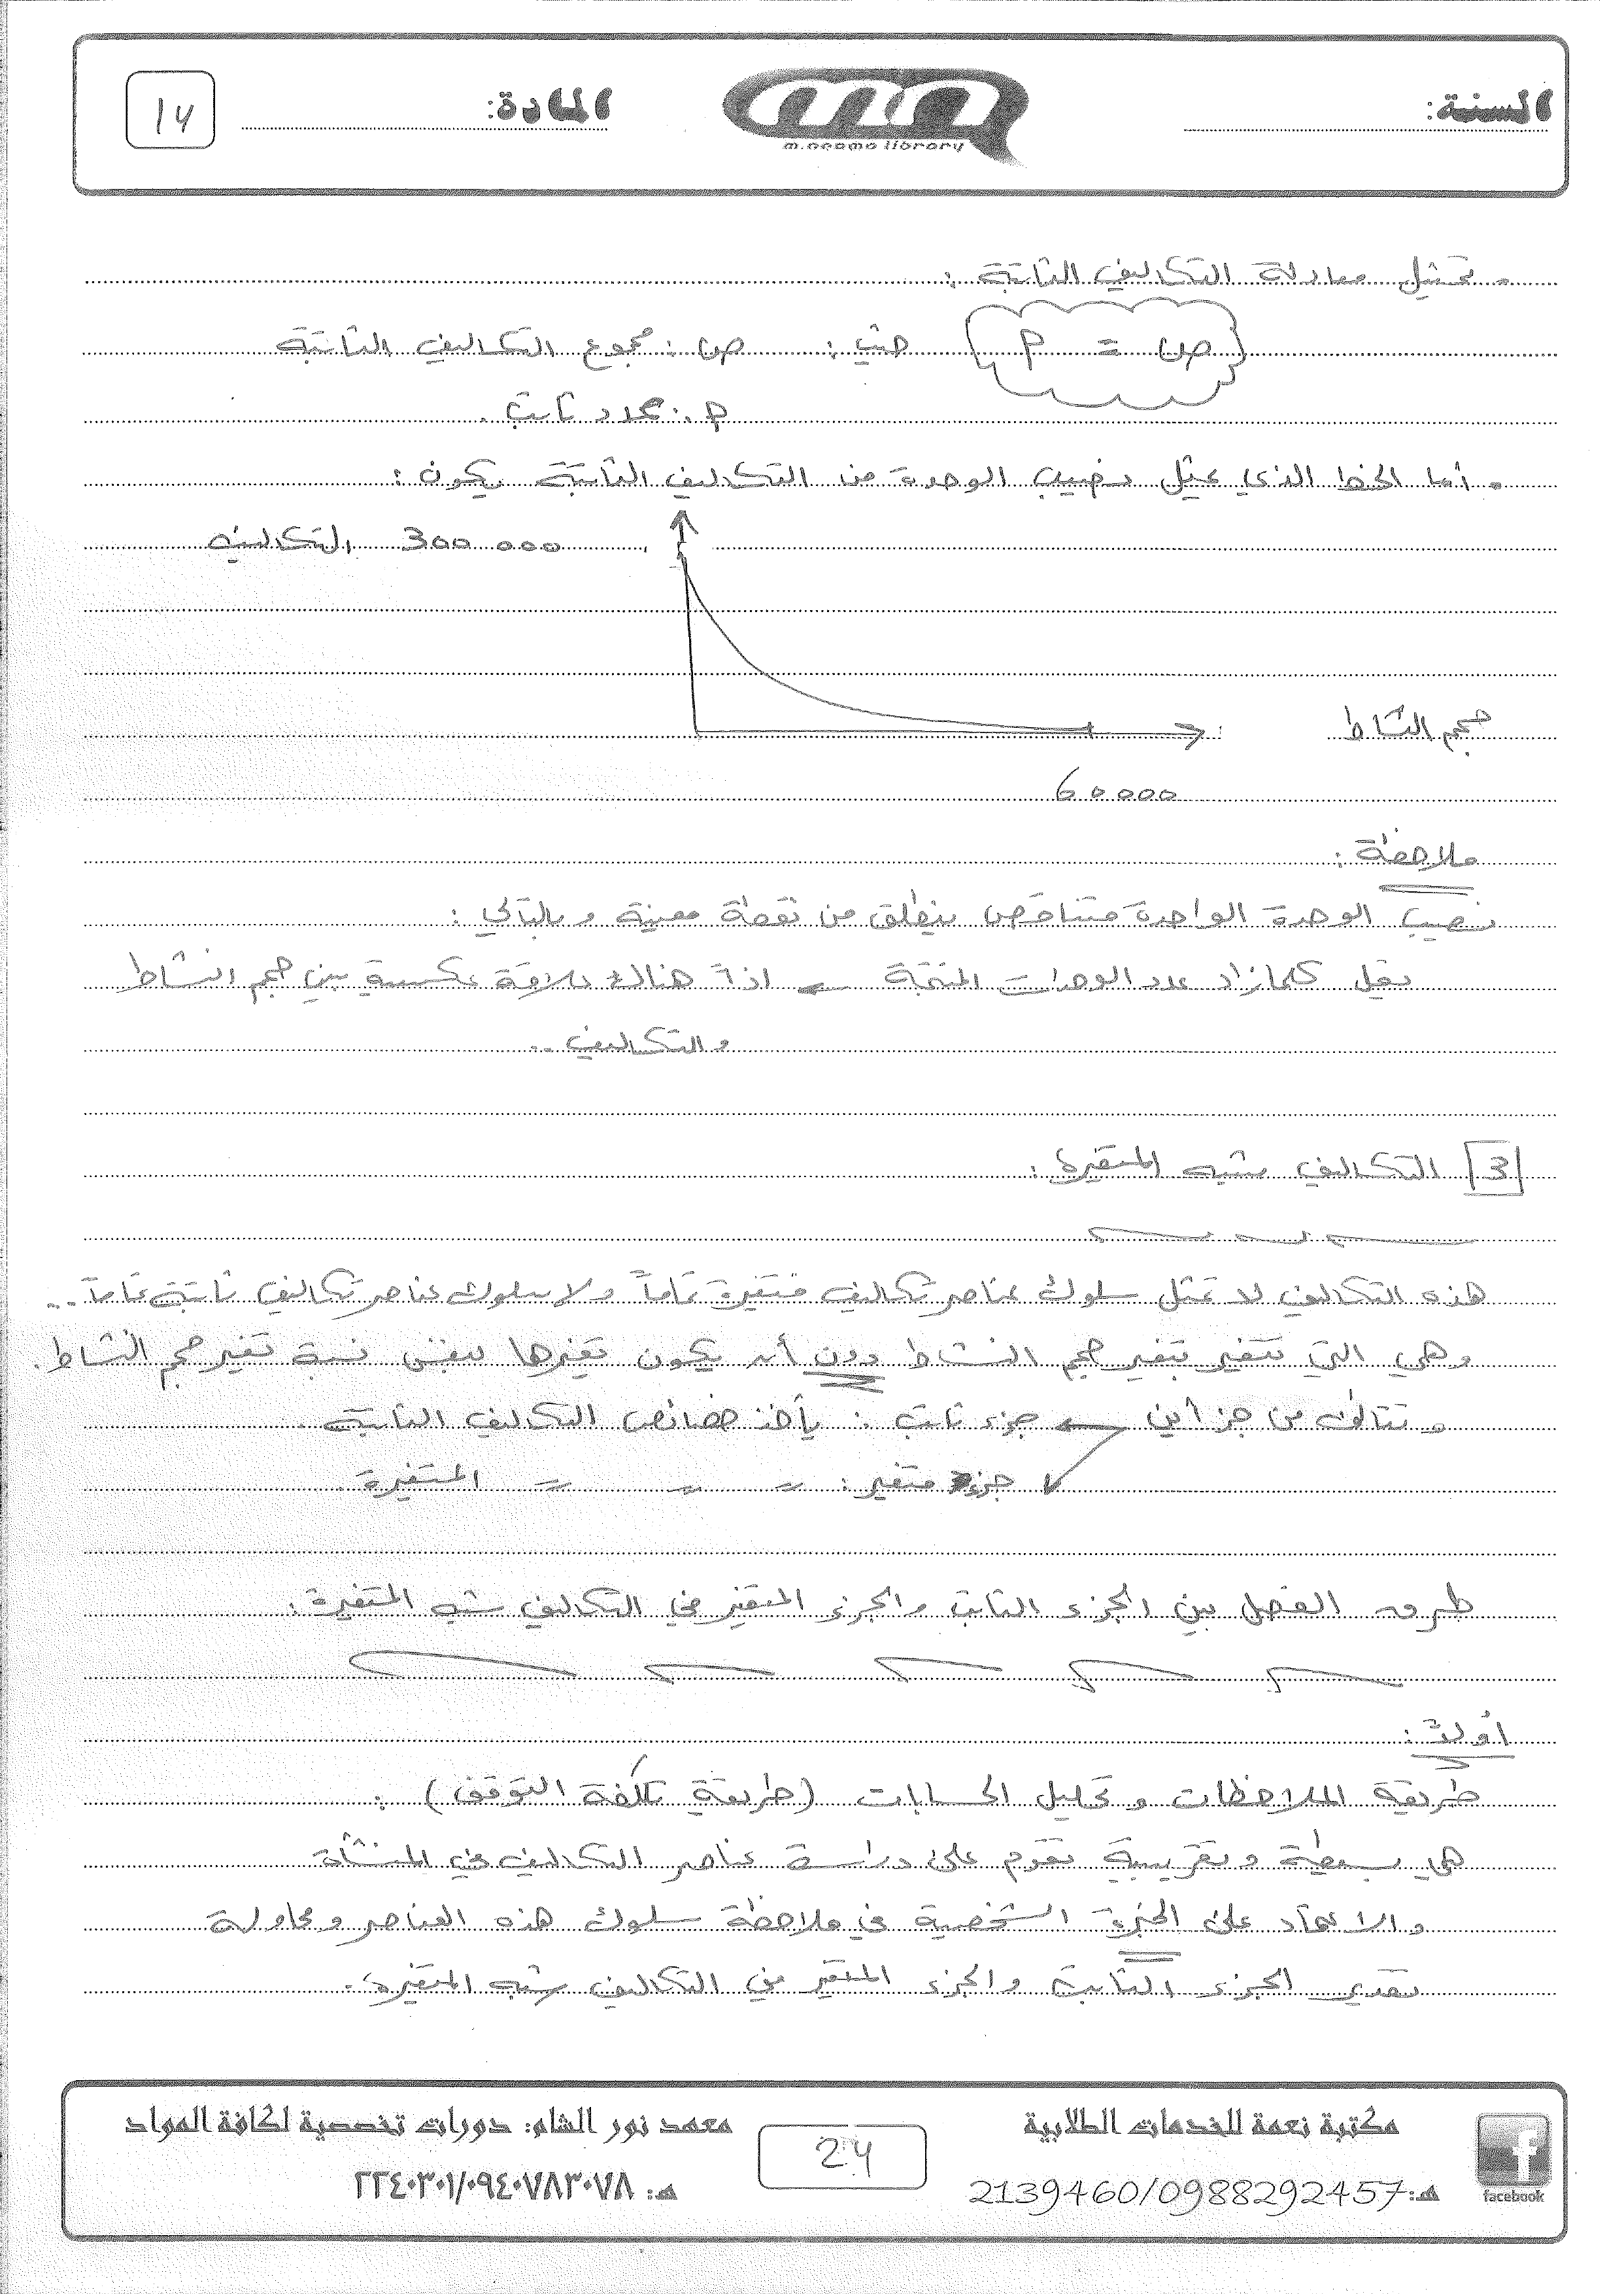 السنة:
m.neama library
المادة:
14
. تمثيل معادلة التكاليف الثابتة :
ص = م حيث : ص : مجموع التكاليف الثابتة
م : عدد ثابت .
. أما الخط الذي يمثل نصيب الوحدة من التكاليف الثابتة يكون :
300 000 التكاليف
حجم النشاط
60000
ملاحظة :
نصيب الوحدة الواحدة متناقص ينطلق من نقطة معينة وبالتالي :
يقل كلما زاد عدد الوحدات المنتجة ← اذاً هناك علاقة عكسية بين حجم النشاط
والتكاليف ..
3 التكاليف شبه المتغيرة :
هذه التكاليف لا تمثل سلوك عناصر تكاليف متغيرة تماماً ولا سلوك عناصر تكاليف ثابتة تماماً ..
وهي التي تتغير بتغير حجم النشاط دون أن يكون تغيرها بنفس نسبة تغير حجم النشاط .
وتتألف من جزأين ← جزء ثابت : يأخذ خصائص التكاليف الثابتة .
جزء متغير : = = = المتغيرة .
طرق الفصل بين الجزء الثابت والجزء المتغير في التكاليف شبه المتغيرة :
أولاً :
طريقة الملاحظات وتحليل الحسابات (طريقة تكلفة التوقف) :
هي بسيطة وتقريبية تقوم على دراسة عناصر التكاليف في المنشأة
والاعتماد على الخبرة الشخصية في ملاحظة سلوك هذه العناصر ومحاولة
تقدير الجزء الثابت والجزء المتغير من التكاليف شبه المتغيرة .
مكتبة نعمة للخدمات الطلابية
هـ: 2139460/0988292457
facebook
24
معهد نور الشام: دورات تخصصية لكافة المواد
هـ: ٢٢٤٠٣٠١/٠٩٤٠٧٨٣٠٧٨